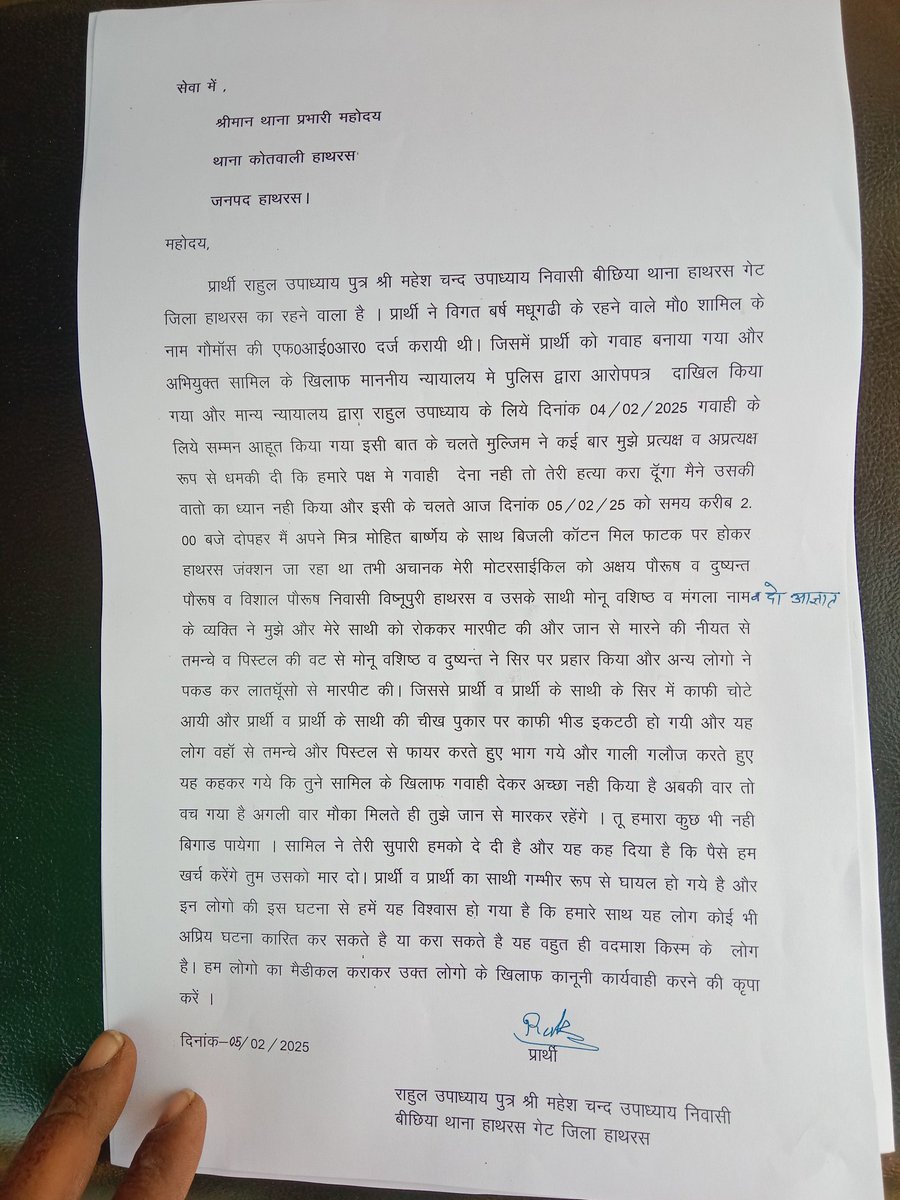 सेवा में ,
श्रीमान थाना प्रभारी महोदय
थाना कोतवाली हाथरस
जनपद हाथरस।
महोदय,
प्रार्थी राहुल उपाध्याय पुत्र श्री महेश चन्द उपाध्याय निवासी बीछिया थाना हाथरस गेट
जिला हाथरस का रहने वाला है । प्रार्थी ने विगत बर्ष मधूगढी के रहने वाले मौ0 शामिल के
नाम गौमॉस की एफ0आई0आर0 दर्ज करायी थी। जिसमें प्रार्थी को गवाह बनाया गया और
अभियुक्त सामिल के खिलाफ माननीय न्यायालय मे पुलिस द्वारा आरोपपत्र दाखिल किया
गया और मान्य न्यायालय द्वारा राहुल उपाध्याय के लिये दिनांक 04/02/2025 गवाही के
लिये सम्मन आहूत किया गया इसी बात के चलते मुल्जिम ने कई बार मुझे प्रत्यक्ष व अप्रत्यक्ष
रूप से धमकी दी कि हमारे पक्ष मे गवाही देना नही तो तेरी हत्या करा दूॅगा मैने उसकी
वातो का ध्यान नही किया और इसी के चलते आज दिनांक 05/02/25 को समय करीब 2.
00 बजे दोपहर मैं अपने मित्र मोहित बार्ष्णेय के साथ बिजली कॉटन मिल फाटक पर होकर
हाथरस जंक्शन जा रहा था तभी अचानक मेरी मोटरसाईकिल को अक्षय पौरूष व दुष्यन्त
पौरूष व विशाल पौरूष निवासी विष्नूपुरी हाथरस व उसके साथी मोनू वशिष्ठ व मंगला नाम व दो अज्ञात
के व्यक्ति ने मुझे और मेरे साथी को रोककर मारपीट की और जान से मारने की नीयत से
तमन्चे व पिस्टल की वट से मोनू वशिष्ठ व दुष्यन्त ने सिर पर प्रहार किया और अन्य लोगो ने
पकड कर लातघूॅसो से मारपीट की। जिससे प्रार्थी व प्रार्थी के साथी के सिर में काफी चोटे
आयी और प्रार्थी व प्रार्थी के साथी की चीख पुकार पर काफी भीड इकटठी हो गयी और यह
लोग वहॉ से तमन्चे और पिस्टल से फायर करते हुए भाग गये और गाली गलौज करते हुए
यह कहकर गये कि तुने सामिल के खिलाफ गवाही देकर अच्छा नही किया है अबकी वार तो
वच गया है अगली वार मौका मिलते ही तुझे जान से मारकर रहेंगे । तू हमारा कुछ भी नही
बिगाड पायेगा । सामिल ने तेरी सुपारी हमको दे दी है और यह कह दिया है कि पैसे हम
खर्च करेंगे तुम उसको मार दो। प्रार्थी व प्रार्थी का साथी गम्भीर रूप से घायल हो गये है और
इन लोगो की इस घटना से हमें यह विश्वास हो गया है कि हमारे साथ यह लोग कोई भी
अप्रिय घटना कारित कर सकते है या करा सकते है यह वहुत ही वदमाश किस्म के लोग
है। हम लोगो का मैडीकल कराकर उक्त लोगो के खिलाफ कानूनी कार्यवाही करने की कृपा
करें ।
दिनांक–05/02/2025
प्रार्थी
राहुल उपाध्याय पुत्र श्री महेश चन्द उपाध्याय निवासी
बीछिया थाना हाथरस गेट जिला हाथरस